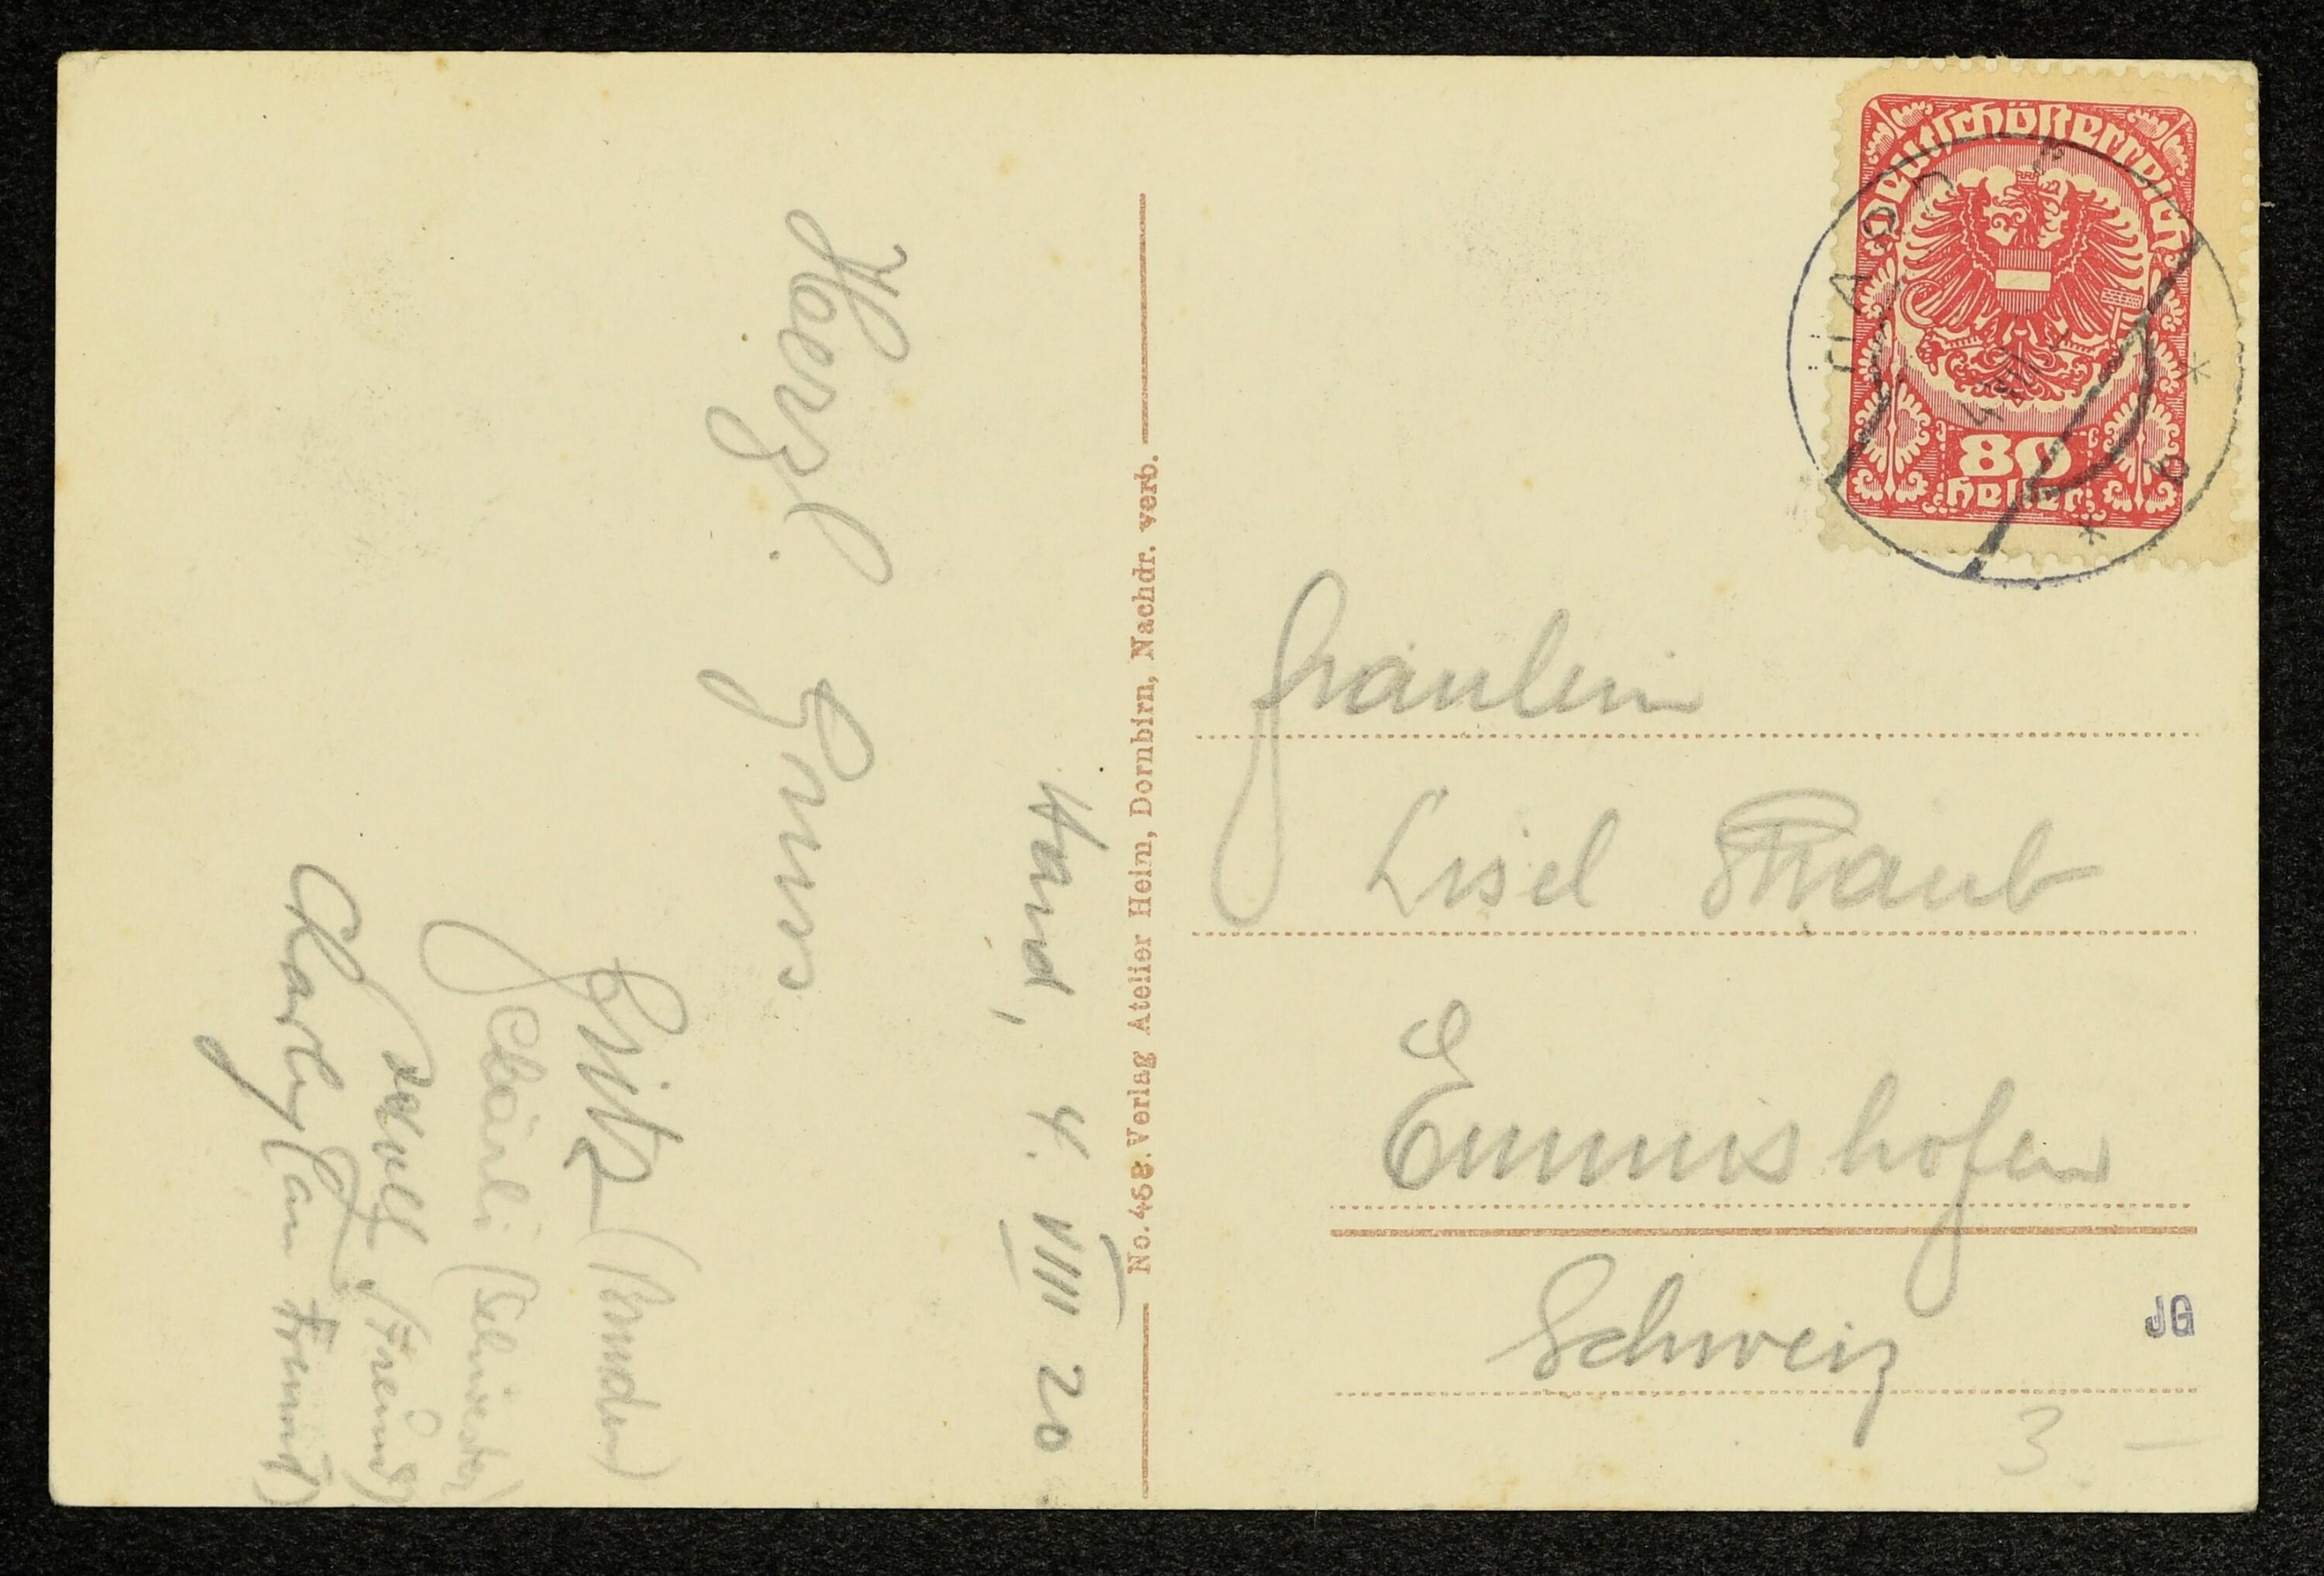 Hard, 4. VIII 20.
Herzl. Gruss
Fritz (Bruder)
Clärli (Schwester)
(Freund)
Charly (an Freund)
No. 468. Verlag Atelier Heim, Dornbirn, Nachdr. verb.
Deutschösterreich
80
heller
HARD
Fräulein
Lisel Straub
Emmishofen
Schweiz
JG
3.—